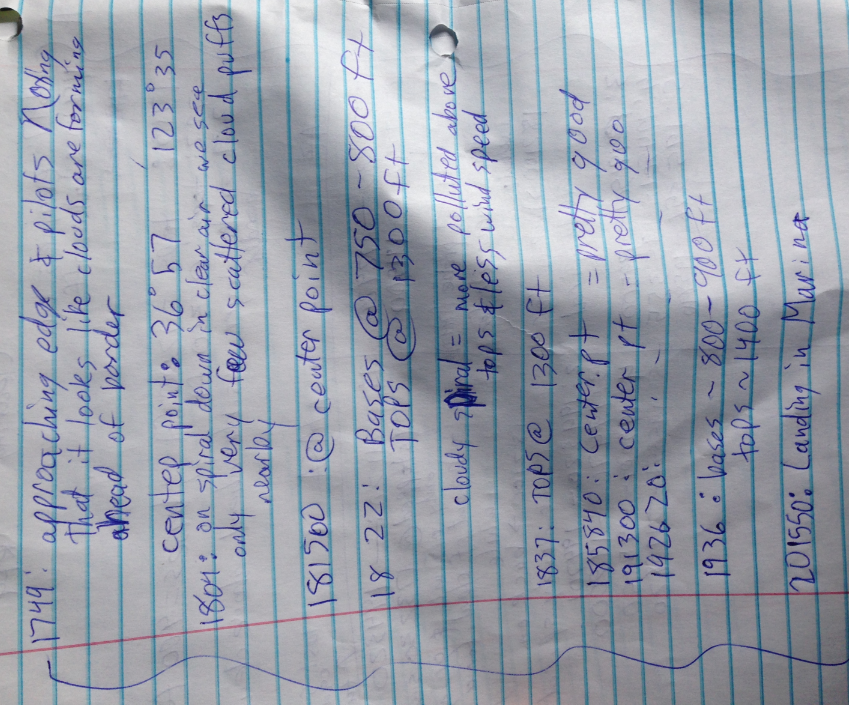 1749: approaching edge & pilots Noting
that it looks like clouds are forming
ahead of border
center point: 36°57 123°35
1804: on spiral down in clear air we see
only very few scattered cloud puffs
nearby
181500 :@ center point
18 22: Bases @ 750-800 ft
TOPS @ 1300 ft
cloudy spiral = more polluted above
tops & less wind speed
1837: TOPS @ 1300 ft
185840: center pt = pretty good
191300: center pt - pretty goo
192620:
1936: bases ~ 800-900 ft
tops ~ 1400 ft
201550: Landing in Marina